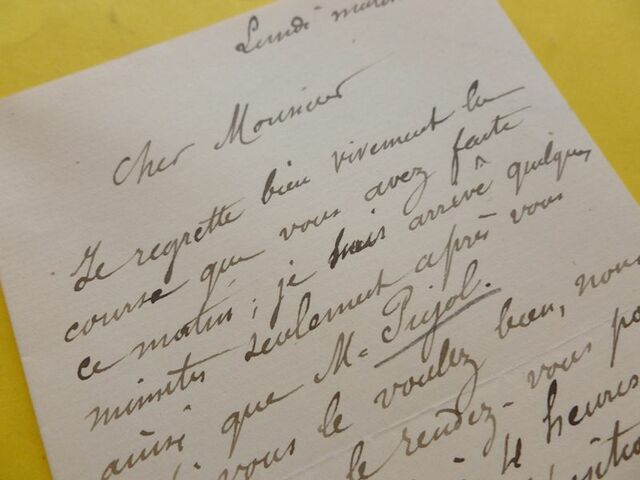 Lundi
Cher Monsieur
Je regrette bien vivement la
course que vous avez faite
ce matin ; je suis arrivé quelques
minutes seulement après vous
ainsi que Mr Pujol.
vous le voulez bien, nous
le rendez-vous
4 heures